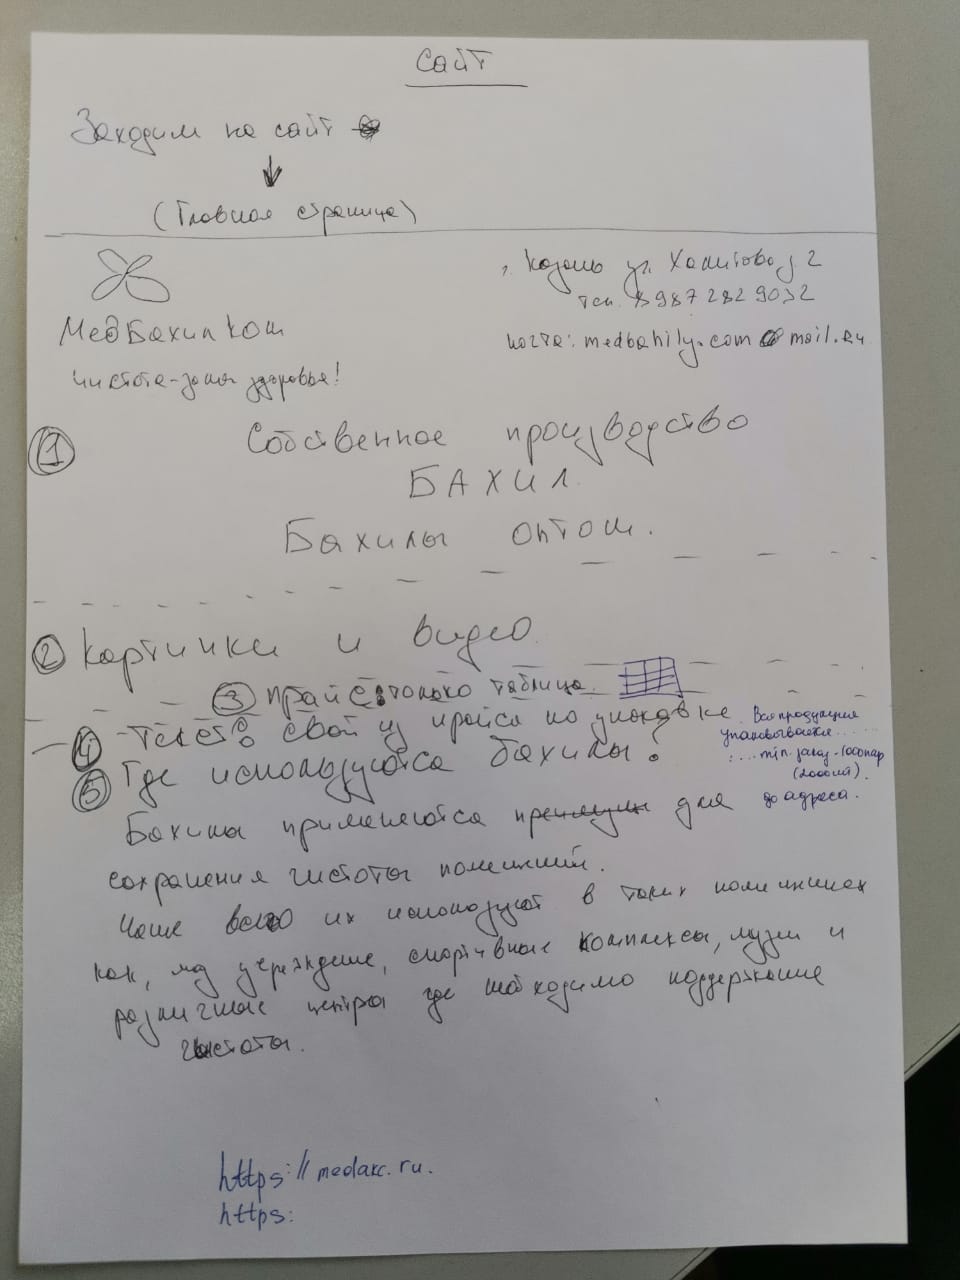 Сайт
Заходим на сайт
(Главная страница)
МедБахилКом
Чистота-залог здоровья!
г. Казань ул. Хамитова, 2
тел. 8987 282 9032
почта: medbahily.com@mail.ru
1 Собственное производство
БАХИЛ.
Бахилы оптом.
2 Картинки и видео
3 прайс только таблица.
4 - Текст свой из прайса по упаковке
Вся продукция
упаковывается......
:....min. заку - 1000пар
(2000шт).
до адреса.
5 Где используются бахилы?
Бахилы применяются для
сохранения чистоты помещений.
Чаще всего их используют в таких помещениях
как, мед учреждение, спортивные комплексы, музеи и
различные центры где необходимо поддержание
чистоты.
https://medakc.ru.
https: